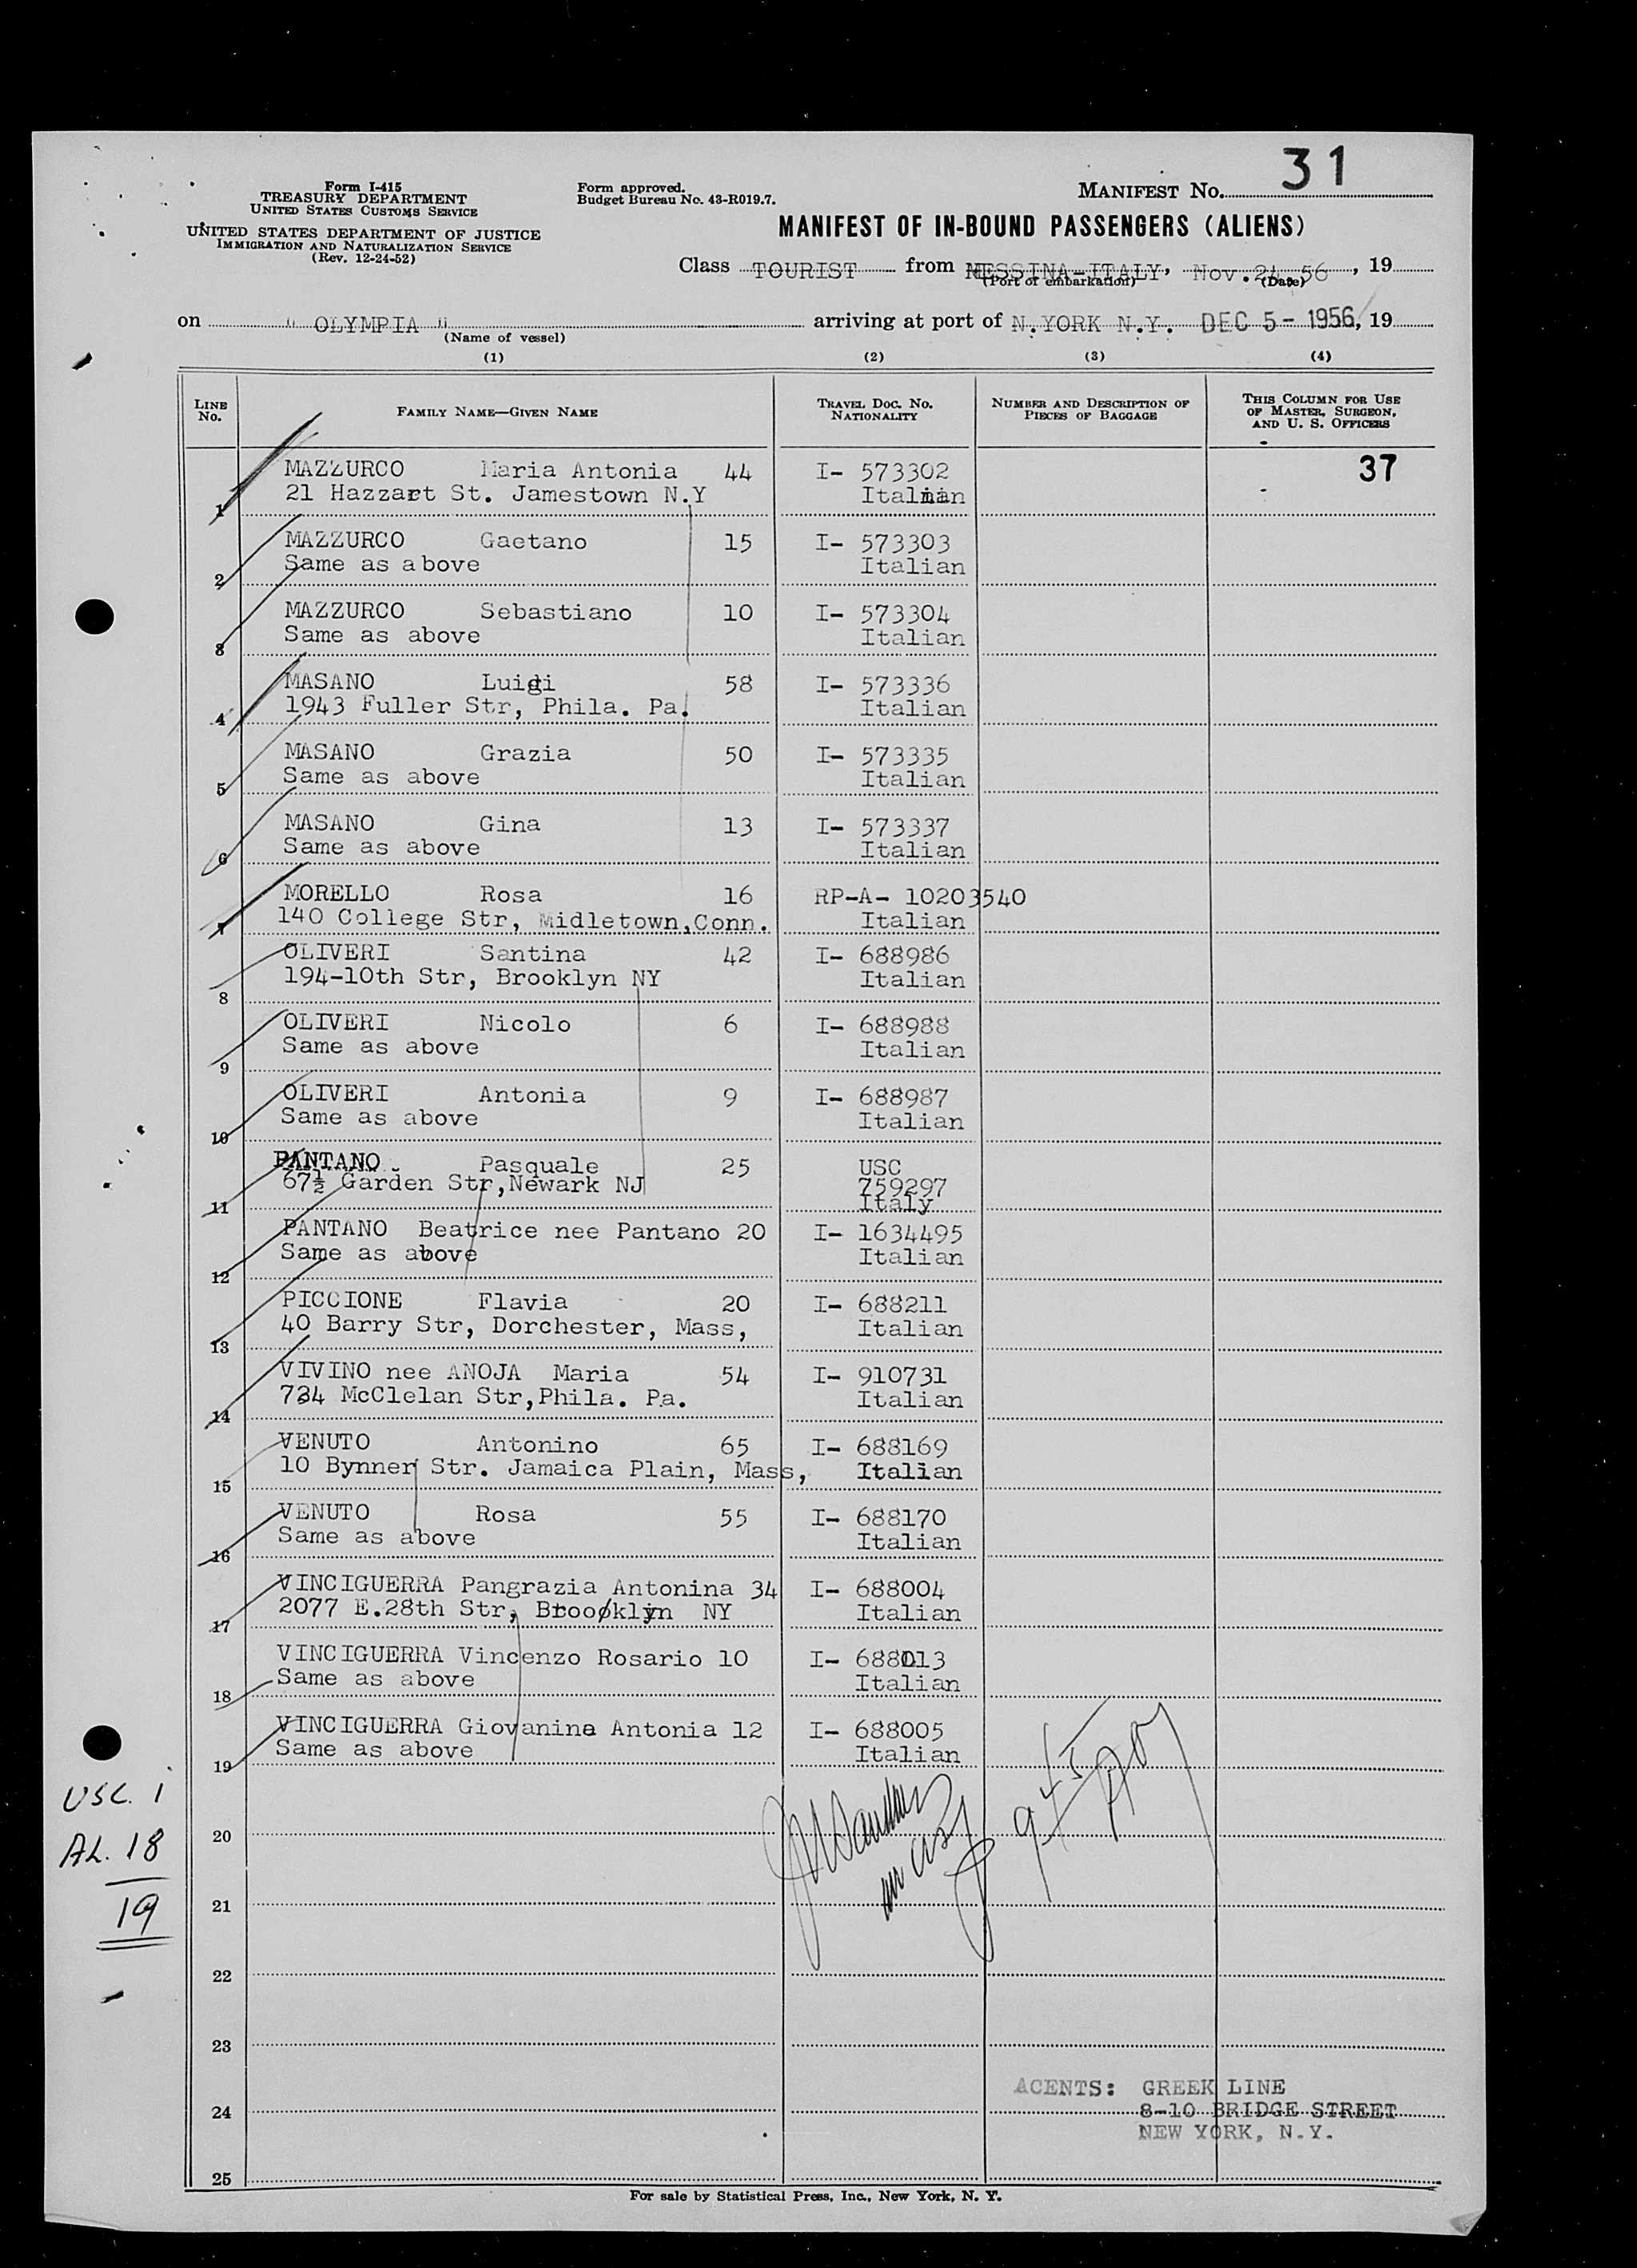 31
Form I-415
TREASURY DEPARTMENT
UNITED STATES CUSTOMS SERVICE
UNITED STATES DEPARTMENT OF JUSTICE
IMMIGRATION AND NATURALIZATION SERVICE
(Rev. 12-24-52)
Form approved.
Budget Bureau No. 43-R019.7.
MANIFEST No.
MANIFEST OF IN-BOUND PASSENGERS (ALIENS)
Class TOURIST from MESSINA-ITALY, Nov.24.56, 19
(Port of embarkation) (Date)
on " OLYMPIA " arriving at port of N.YORK N.Y. DEC 5 - 1956, 19
(Name of vessel)
(1) (2) (3) (4)
LINE No. FAMILY NAME—GIVEN NAME TRAVEL DOC. NO. NATIONALITY NUMBER AND DESCRIPTION OF PIECES OF BAGGAGE THIS COLUMN FOR USE OF MASTER, SURGEON, AND U. S. OFFICERS
MAZZURCO Maria Antonia 44 I- 573302 37
1 21 Hazzart St. Jamestown N.Y Italian
MAZZURCO Gaetano 15 I- 573303
2 Same as above Italian
MAZZURCO Sebastiano 10 I- 573304
3 Same as above Italian
MASANO Luigi 58 I- 573336
4 1943 Fuller Str, Phila. Pa. Italian
MASANO Grazia 50 I- 573335
5 Same as above Italian
MASANO Gina 13 I- 573337
6 Same as above Italian
MORELLO Rosa 16 RP-A- 10203540
7 140 College Str, Midletown,Conn. Italian
OLIVERI Santina 42 I- 688986
8 194-10th Str, Brooklyn NY Italian
OLIVERI Nicolo 6 I- 688988
9 Same as above Italian
OLIVERI Antonia 9 I- 688987
10 Same as above Italian
PANTANO Pasquale 25 USC
11 67½ Garden Str,Newark NJ 759297
Italy
PANTANO Beatrice nee Pantano 20 I- 1634495
12 Same as above Italian
PICCIONE Flavia 20 I- 688211
13 40 Barry Str, Dorchester, Mass, Italian
VIVINO nee ANOJA Maria 54 I- 910731
14 734 McClelan Str,Phila. Pa. Italian
VENUTO Antonino 65 I- 688169
15 10 Bynner Str. Jamaica Plain, Mass, Italian
VENUTO Rosa 55 I- 688170
16 Same as above Italian
VINCIGUERRA Pangrazia Antonina 34 I- 688004
17 2077 E.28th Str, Brooklyn NY Italian
VINCIGUERRA Vincenzo Rosario 10 I- 688013
18 Same as above Italian
VINCIGUERRA Giovanina Antonia 12 I- 688005
19 Same as above Italian
USC. 1
AL. 18
19
20
21
22
23
24
25
ACENTS: GREEK LINE
8-10 BRIDGE STREET
NEW YORK, N.Y.
For sale by Statistical Press, Inc., New York, N. Y.